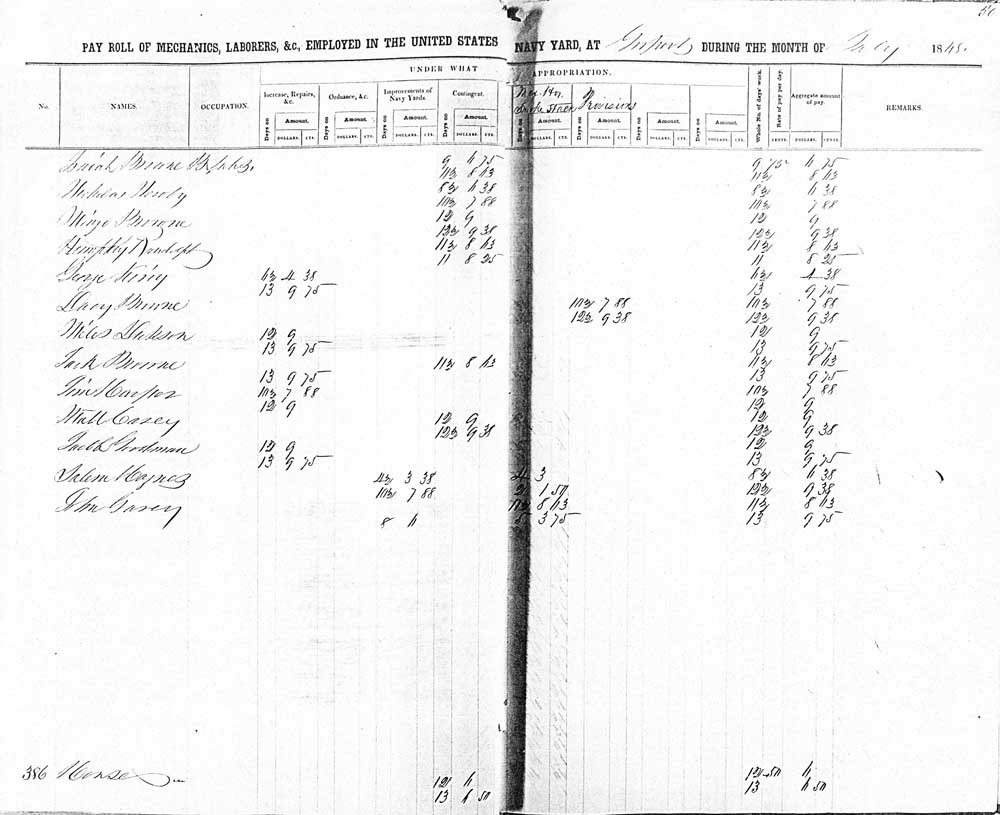 50
PAY ROLL OF MECHANICS, LABORERS, &c, EMPLOYED IN THE UNITED STATES NAVY YARD, AT Gosport DURING THE MONTH OF July 184
UNDER WHAT APPROPRIATION.
No. NAMES. OCCUPATION. Increase, Repairs, &c. Ordnance, &c. Improvements of Navy Yards. Contingent. Provisions Whole No. of days' work. Rate of pay per day. Aggregate amount of pay. REMARKS.
Days on Amount. Days on Amount. Days on Amount. Days on Amount. Days on Amount. Days on Amount. Days on Amount. Days on Amount.
DOLLARS. CTS. DOLLARS. CTS. DOLLARS. CTS. DOLLARS. CTS. DOLLARS. CTS. DOLLARS. CTS. DOLLARS. CTS. DOLLARS. CTS. CENTS. DOLLARS. CENTS.
Isaiah Browne 9 75 9 75 75
11½ 8 63 11½ 8 63
Nicholas 8½ 6 38 8½ 6 38
10½ 7 88 10½ 7 88
Mingo Browne 12 9 12 9
12½ 9 38 12½ 9 38
Humphry Randolph 11½ 8 63 11½ 8 63
11 8 25 11 8 25
George King 4 38 4 38
13 9 75 13 9 75
Davy Browne 10½ 7 88 10½ 7 88
12½ 9 38 12½ 9 38
Miles Dickson 12 9 12 9
13 9 75 13 9 75
Jack Browne 11½ 8 63 11½ 8 63
13 9 75 13 9 75
Tim Harper 10½ 7 88 10½ 7 88
12 9 12 9
Matt Casey 12 9 12 9
12½ 9 38 12½ 9 38
Jacob Goodman 12 9 12 9
13 9 75 13 9 75
Salem Haynes 4½ 3 38 4 3 8½ 6 38
10½ 7 88 2 1 50 12½ 9 38
John 11½ 8 63 11½ 8 63
8 6 5 3 75 13 9 75
386 Horse 12 6 12 50 6
13 6 50 13 6 50